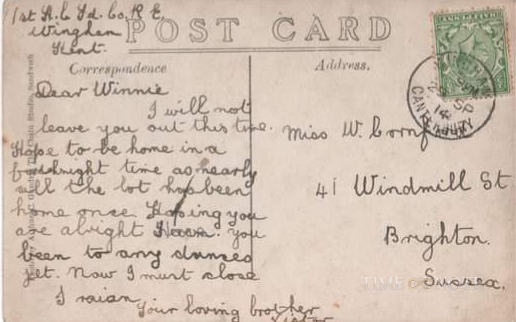 1st H.C Fd. Co. R.E.
Wingham
Kent.
POST CARD
Correspondence
Address.
Dear Winnie
I will not
leave you out this time.
Hope to be home in a
fortnight time as nearly
all the lot has been
home once. Hoping you
are alright Have you
been to any dances
yet. Now I must close
I remain
Your loving brother
Miss W. Cornf
41 Windmill St
Brighton.
Sussex.
CANTERBURY
SP
14